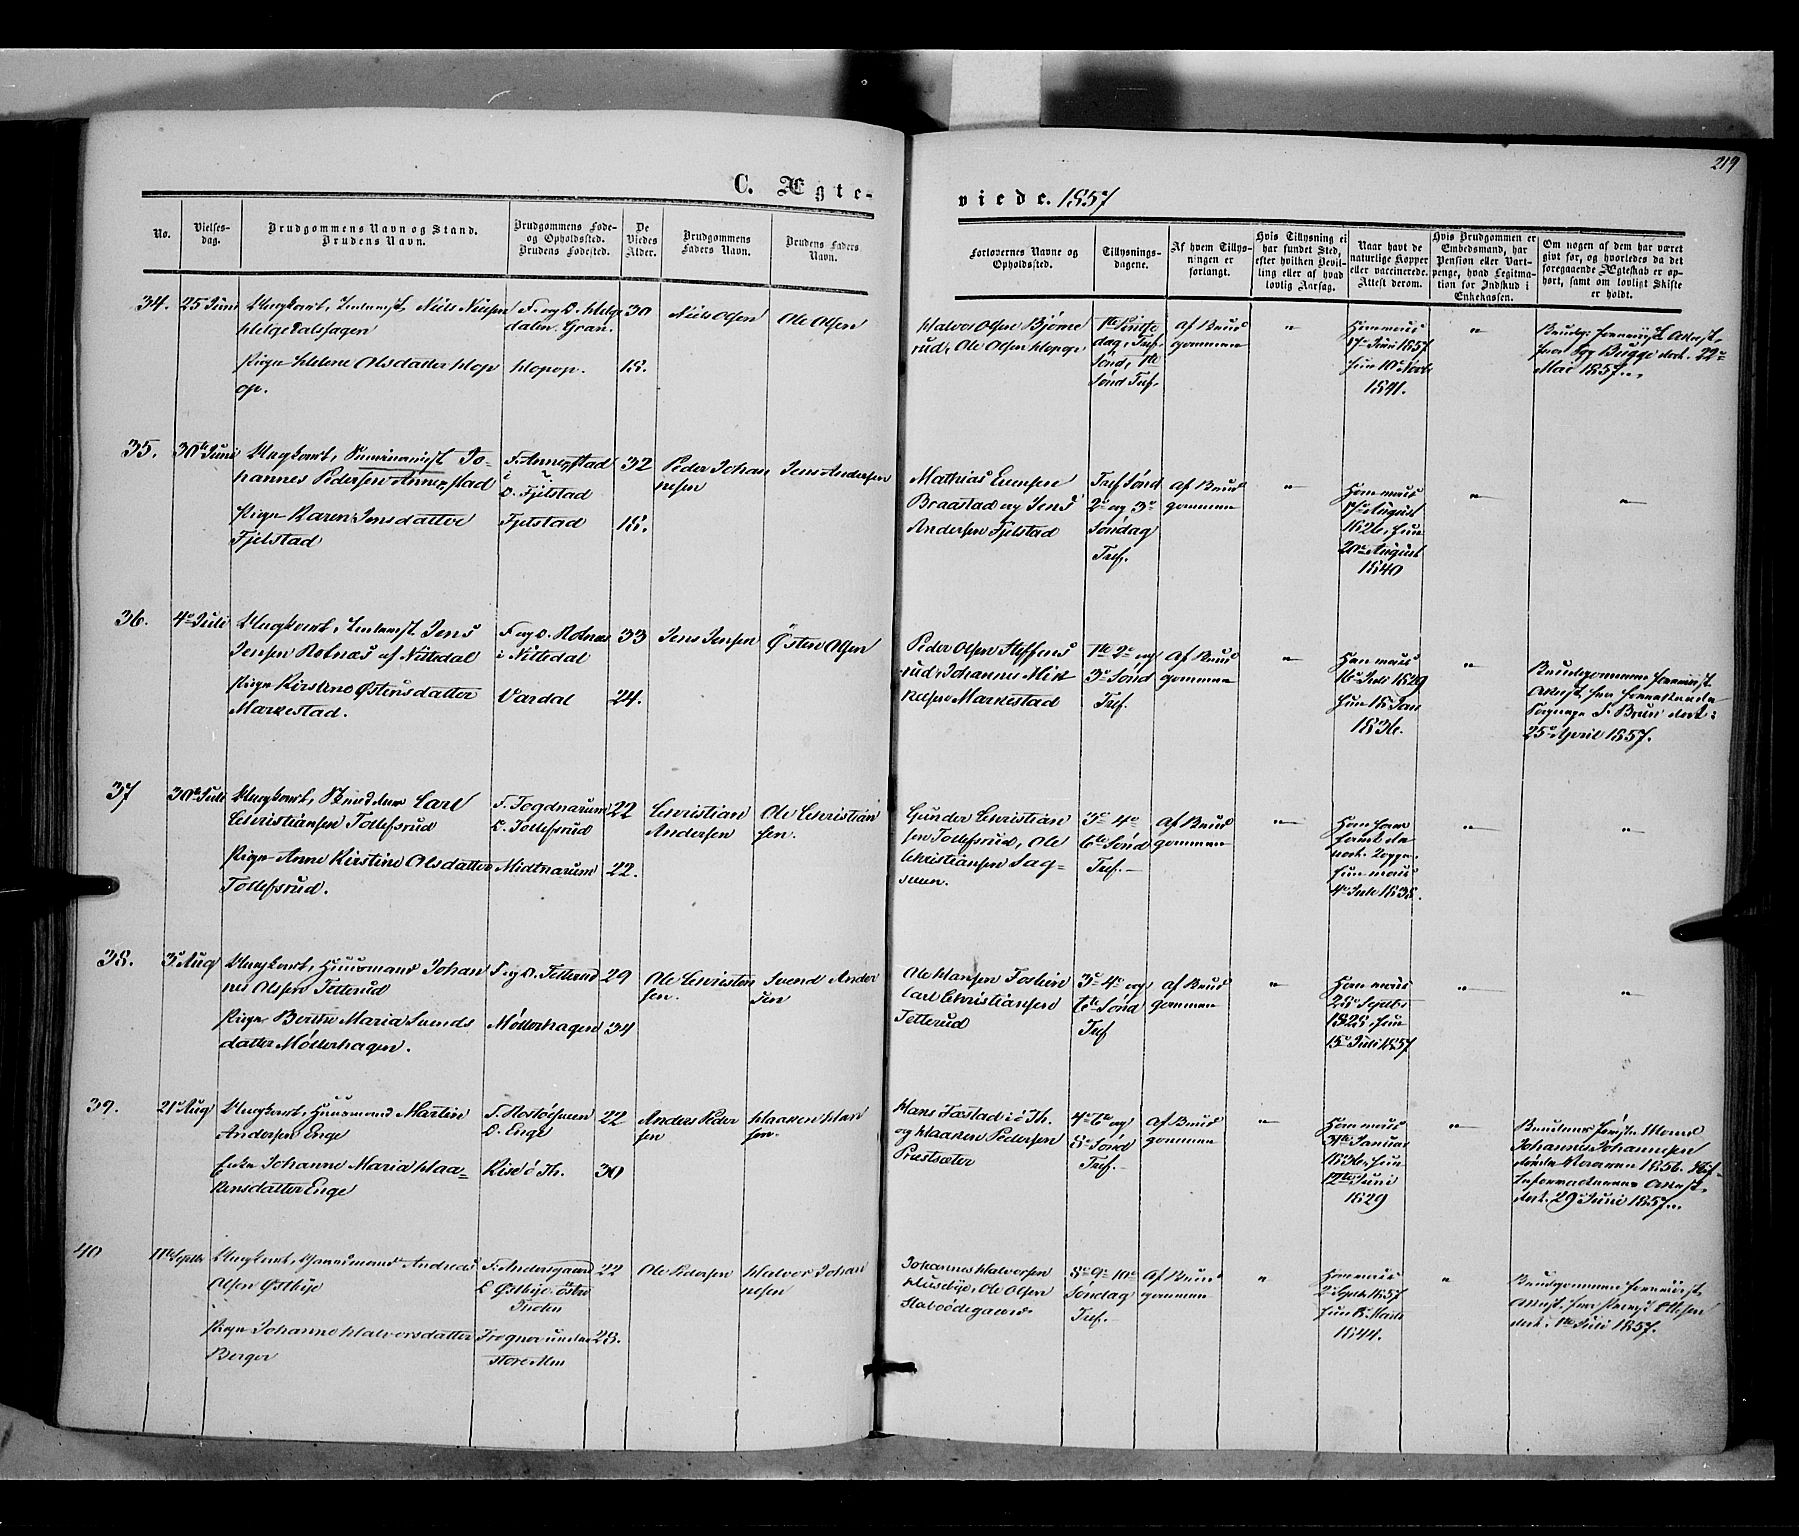 219
C. Ægteviede. 1857
No.
Vielses-
dag.
Brudgommens Navn og Stand.
Brudens Navn.
Brudgommens Føde-
og Opholdssted.
Brudens Fødested.
De
Viedes
Alder.
Brudgommens
Faders Navn.
Brudens Faders
Navn.
Forlovernes Navne og
Opholdssted.
Tillysnings-
dagene.
Af hvem Tillys-
ningen er
forlangt.
Hvis Tillysning ei
har fundet Sted,
efter hvilken Bevil-
ling eller af hvad
lovlig Aarsag.
Naar havt de
naturlige Kopper
eller vaccinerede.
Attest derom.
Hvis Brudgommen er
Embedsmand, har
Pension eller Vart-
penge, hvad Legitima-
tion for Indskud i
Enkekassen.
Om nogen af dem har været
givt før, og hvorledes da det
foregaaende Ægteskab er op-
hørt, samt om lovligt Skifte
er holdt.
34.
25 Juni
Ungkarl, Niels Nielsen
Helgedalshagen
Pige Helene Olsdatter Hop
op.
F. og O. Helge
dalen Gran.
Hopop.
30
18.
Niels Olsen
Ole Olsen
Halvor Olsen Bjørne
rud, Ole Olsen Hopop.
1ste Pintse
dag, Tref.
Sønd, 1ste
Sønd Tref.
af Brud
gommen
"
Han vacc
17de Juni 1857
hun 10de Novbr
1841.
"
Brudg: forevist Attest
fra Bugge dat. 22de
Mai 1857.
35.
30te Juni
Ungkarl, Jo-
hannes Pedersen Annexstad
Pige Karen Jensdatter
Fjelstad
F. Annexstad
O. Fjelstad
Fjelstad
32
18.
Peder Johan
nesen
Jens Andersen
Mathias Evensen
Braastad og Jens
Andersen Fjelstad
Tref Sønd
2de og 3de
Søndag
Tref.
af Brud
gommen
"
Han vacc
August
1826, hun
20de August
1840
"
"
36.
4de Juli
Ungkarl, Jens
Jensen Rotnæs af Nittedal
Pige Kirstine Østensdatter
Markestad.
F. og O. Rotnæs
i Nittedal
Vardal
33
24.
Jens Jensen
Østen Olsen
Peder Olsen Steffens
rud, Johannes Mik
kelsen Markestad
1ste 2de og
3de Sønd
Tref.
af Brud
gommen
"
Han vacc
16de Juli 1829
hun 18de Jan
1836.
"
Brudgommen forevist
Attest fra
Bruun dat:
25de April 1857.
37
30te Juli
Ungkarl, Carl
Christiansen Tollefsrud
Pige Anne Kirstine Olsdatter
Tollefsrud.
F. Sogdnarum
O. Tollefsrud
Midtnarum
22
22.
Christian
Andersen
Ole Christian
sen.
Gunder Christian
sen Tollefsrud, Ole
Christiansen Sag-
suen.
3de 4de
6te Sønd
Tref.
af Brud
gommen
"
Han har
hun vacc
4de Juli 1838.
"
"
38.
3de Aug
Ungkarl, Huusmand Johan
nes Olsen Tetterud
Pige Berthe Maria Svends
datter Møllerhagen.
F. og O. Tetterud
Møllerhagen
29
34
Ole Christen
sen.
Svend Ander
sen
Ole Hansen Foslien
Carl Christiansen
Tetterud
3de 4de og
6te Sønd
Tref
af Brud
gommen
"
Han vacc
28de Septbr
1828, hun
15de Juli 1857
"
"
39.
21de Aug
Ungkarl, Huusmand Martin
Andersen Enge
Enke Johanne Maria Haa-
kensdatter Enge
O. Enge
Kise i Th.
22
30
Anders Peder
sen
Haaken Han
sen.
Hans Fæstad i Ø Th.
og Haaken Pedersen
Prestsæter
4de 6te og
8de Sønd
Tref.
af Brud
gommen
"
Han vacc
31te Januar
1836, hun
12te Juni
1829
"
Brudens første Mand
Johannes Johannesen
døde 1856. Skif-
Attest,
dat. 29 Juni 1857.
40
11te Septbr
Ungkarl, Andreas
Olsen Østbye
Pige Johanne Halvorsdatter
Berger
F. Andersgaard
O. Østbye østre
Toten
Frogner under
store Alm
22
28.
Ole Pedersen
Halvor Johan
nesen
Johannes Halvorsen
Husebye, Ole Olsen
8de 9de 10de
Søndag
Tref.
af Brud
gommen
"
Han vacc
2 Septb 1857
hun 8de Marts
1844.
"
Brudgommen forevist
Attest fra Ottesen
dat. 1ste Juli 1857.